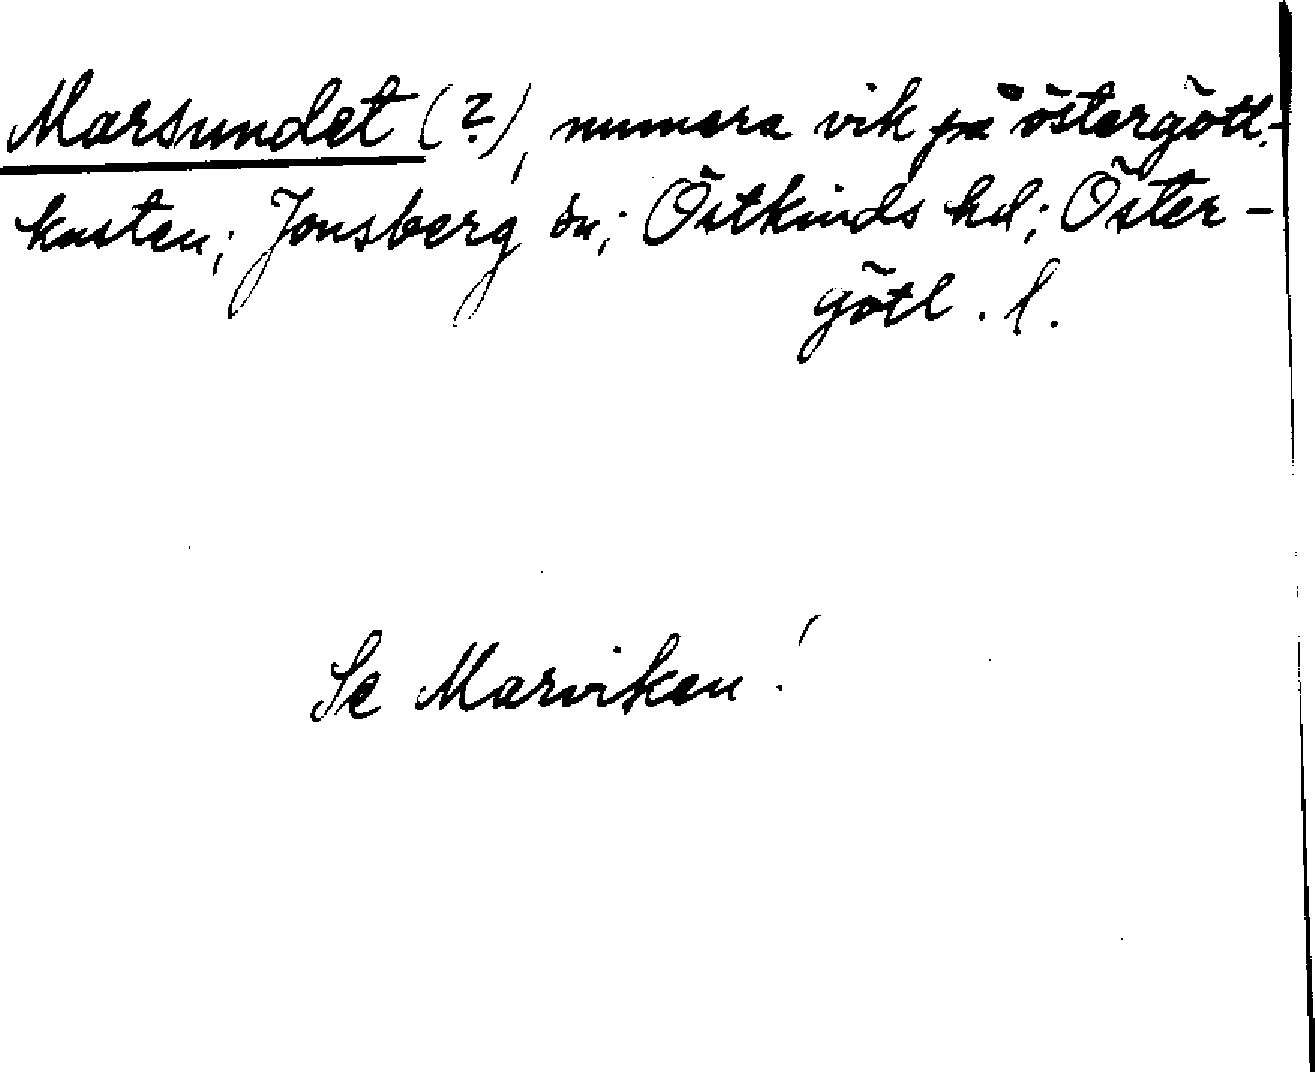 Marsundet (?), numera vik på östergötl.-
kusten; Jonsberg sn; Östkinds hd; Öster-
götl. l.
Se Marviken!